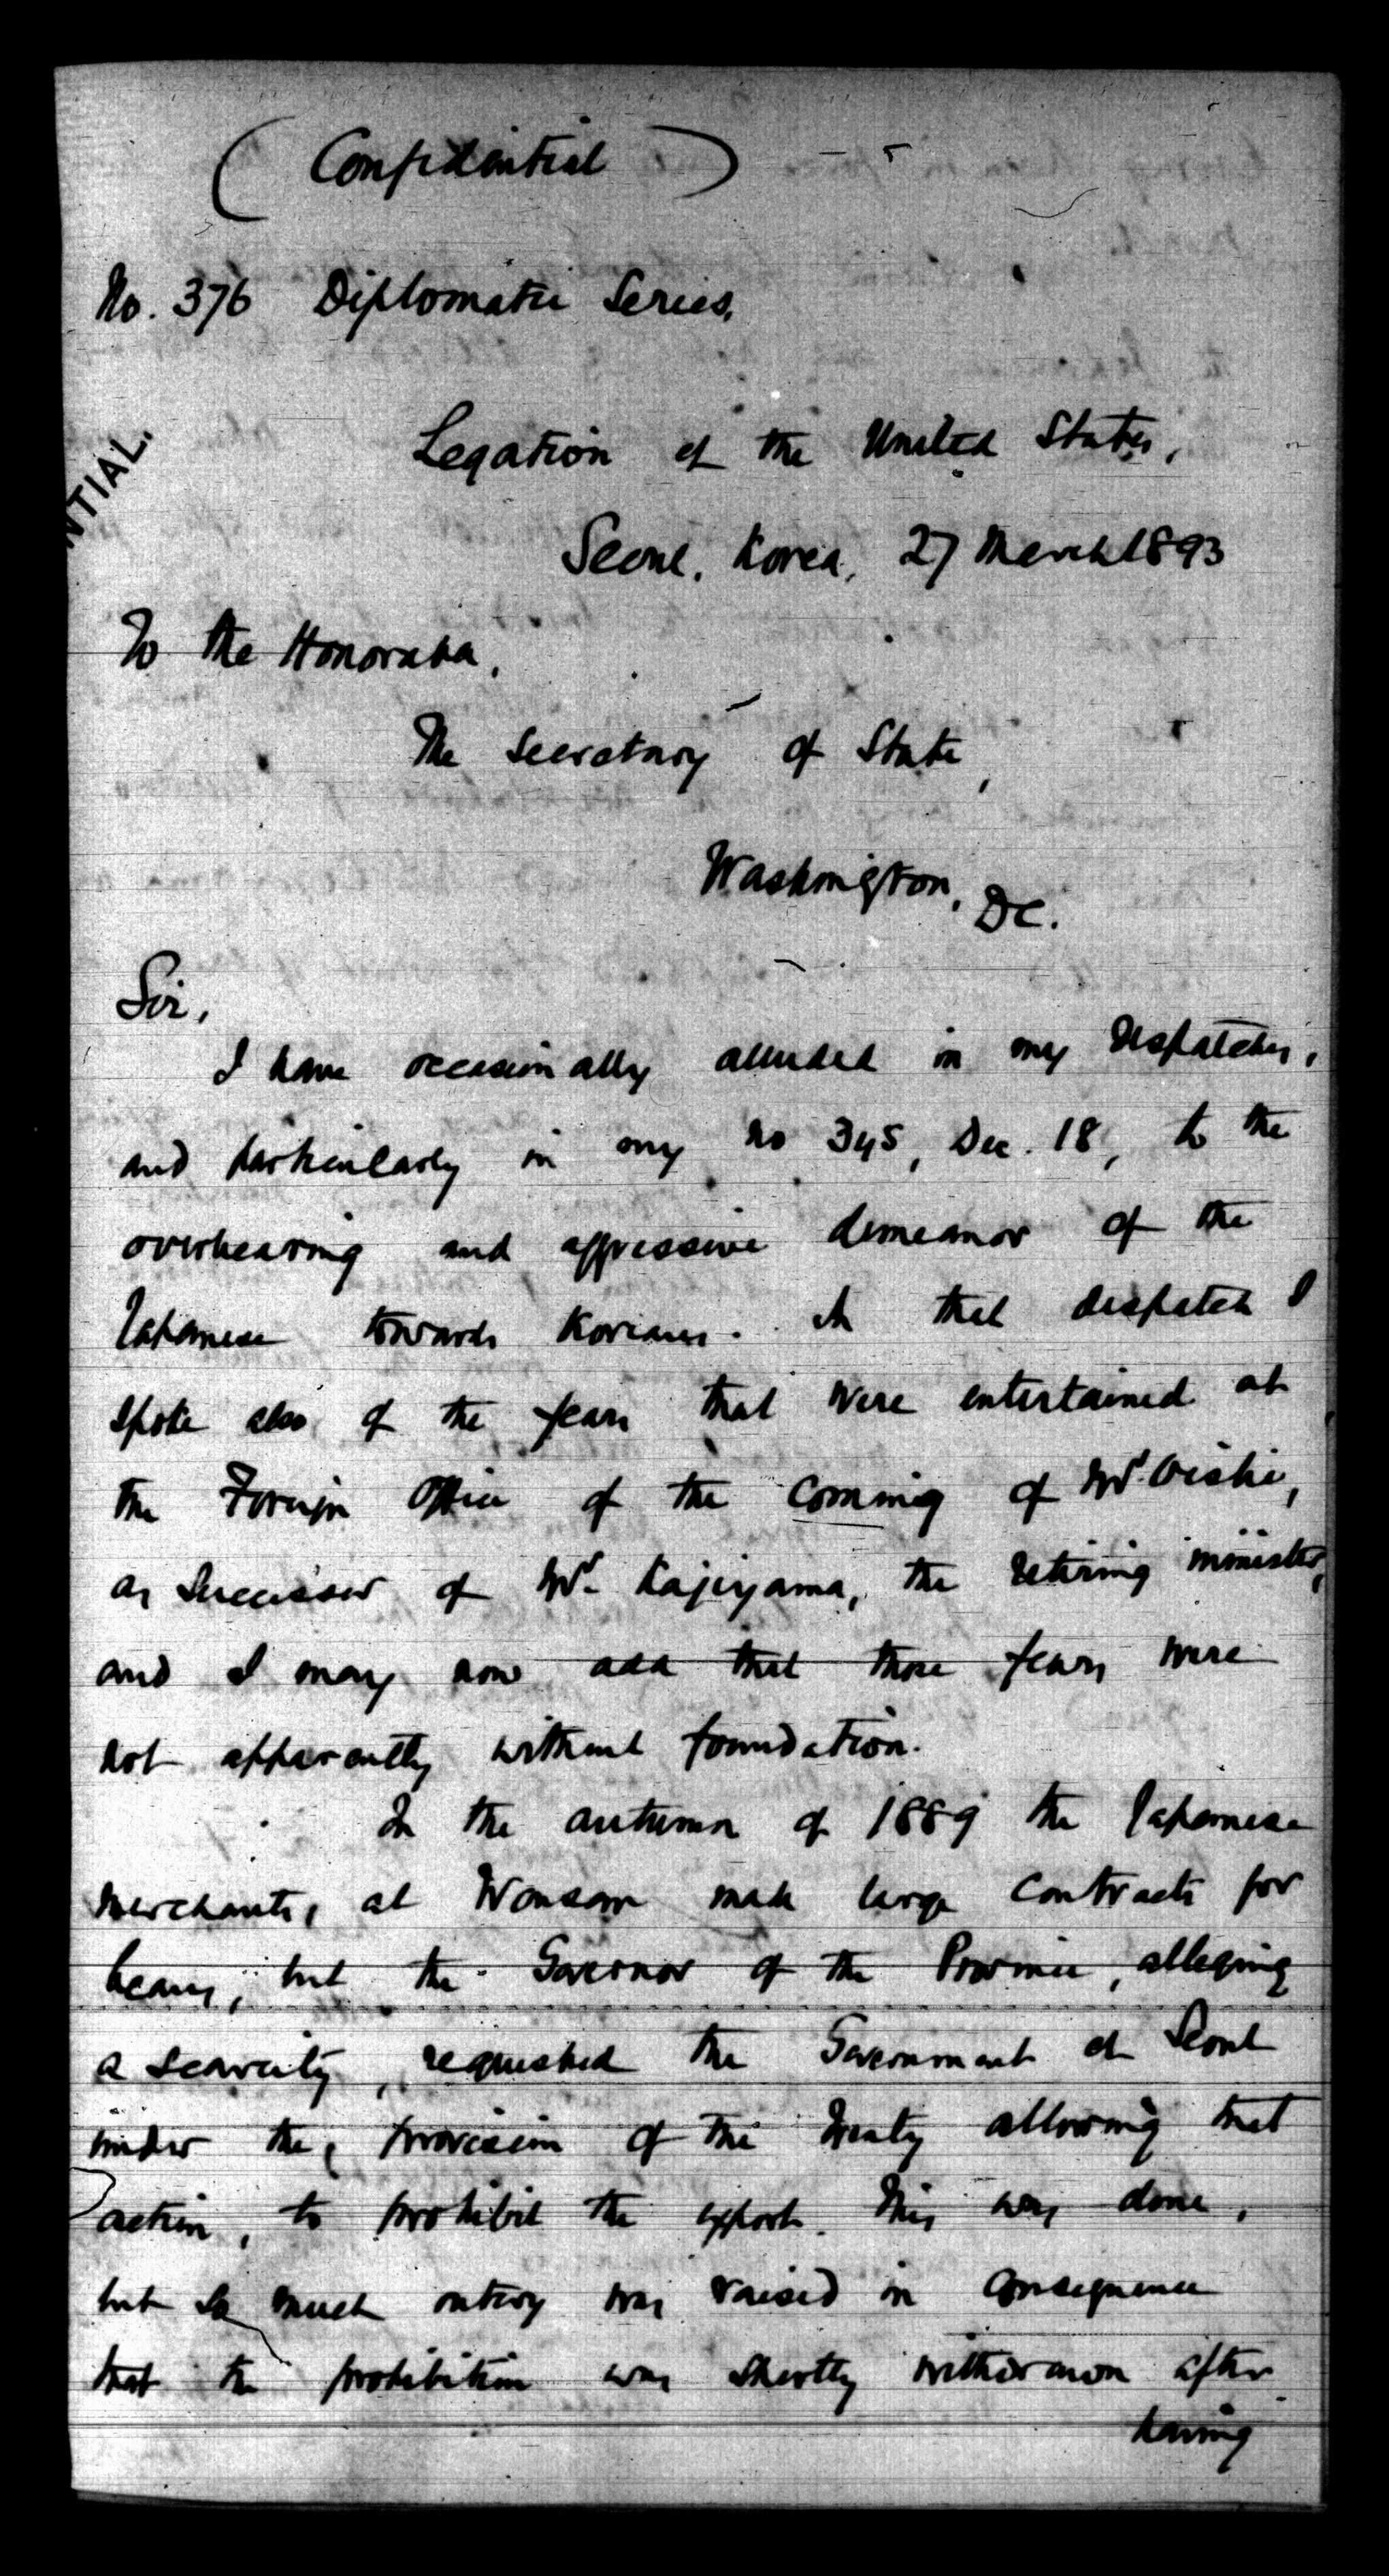 (Confidential)
No. 376 Diplomatic Series.
NTIAL.
Legation of the United States,
Seoul, Korea, 27 March 1893
To the Honorable,
The Secretary of State,
Washington, DC.
Sir,
I have occasionally alluded in my despatches,
and particularly in my no 345, Dec. 18, to the
overbearing and aggressive demeanor of the
Japanese towards Koreans. In that despatch I
spoke also of the fears that were entertained at
the Foreign Office of the coming of Mr. Oishi,
as successor of Mr. Kajiyama, the retiring minister,
and I may now add that those fears were
not apparently without foundation.
In the autumn of 1889 the Japanese
merchants, at Wonsan made large contracts for
beans, but the Governor of the Province, alleging
a scarcity, requested the Government at Seoul
under the provision of the treaty allowing that
action, to prohibit the export. This was done,
but so much outcry was raised in consequence
that the prohibition was shortly withdrawn after
having